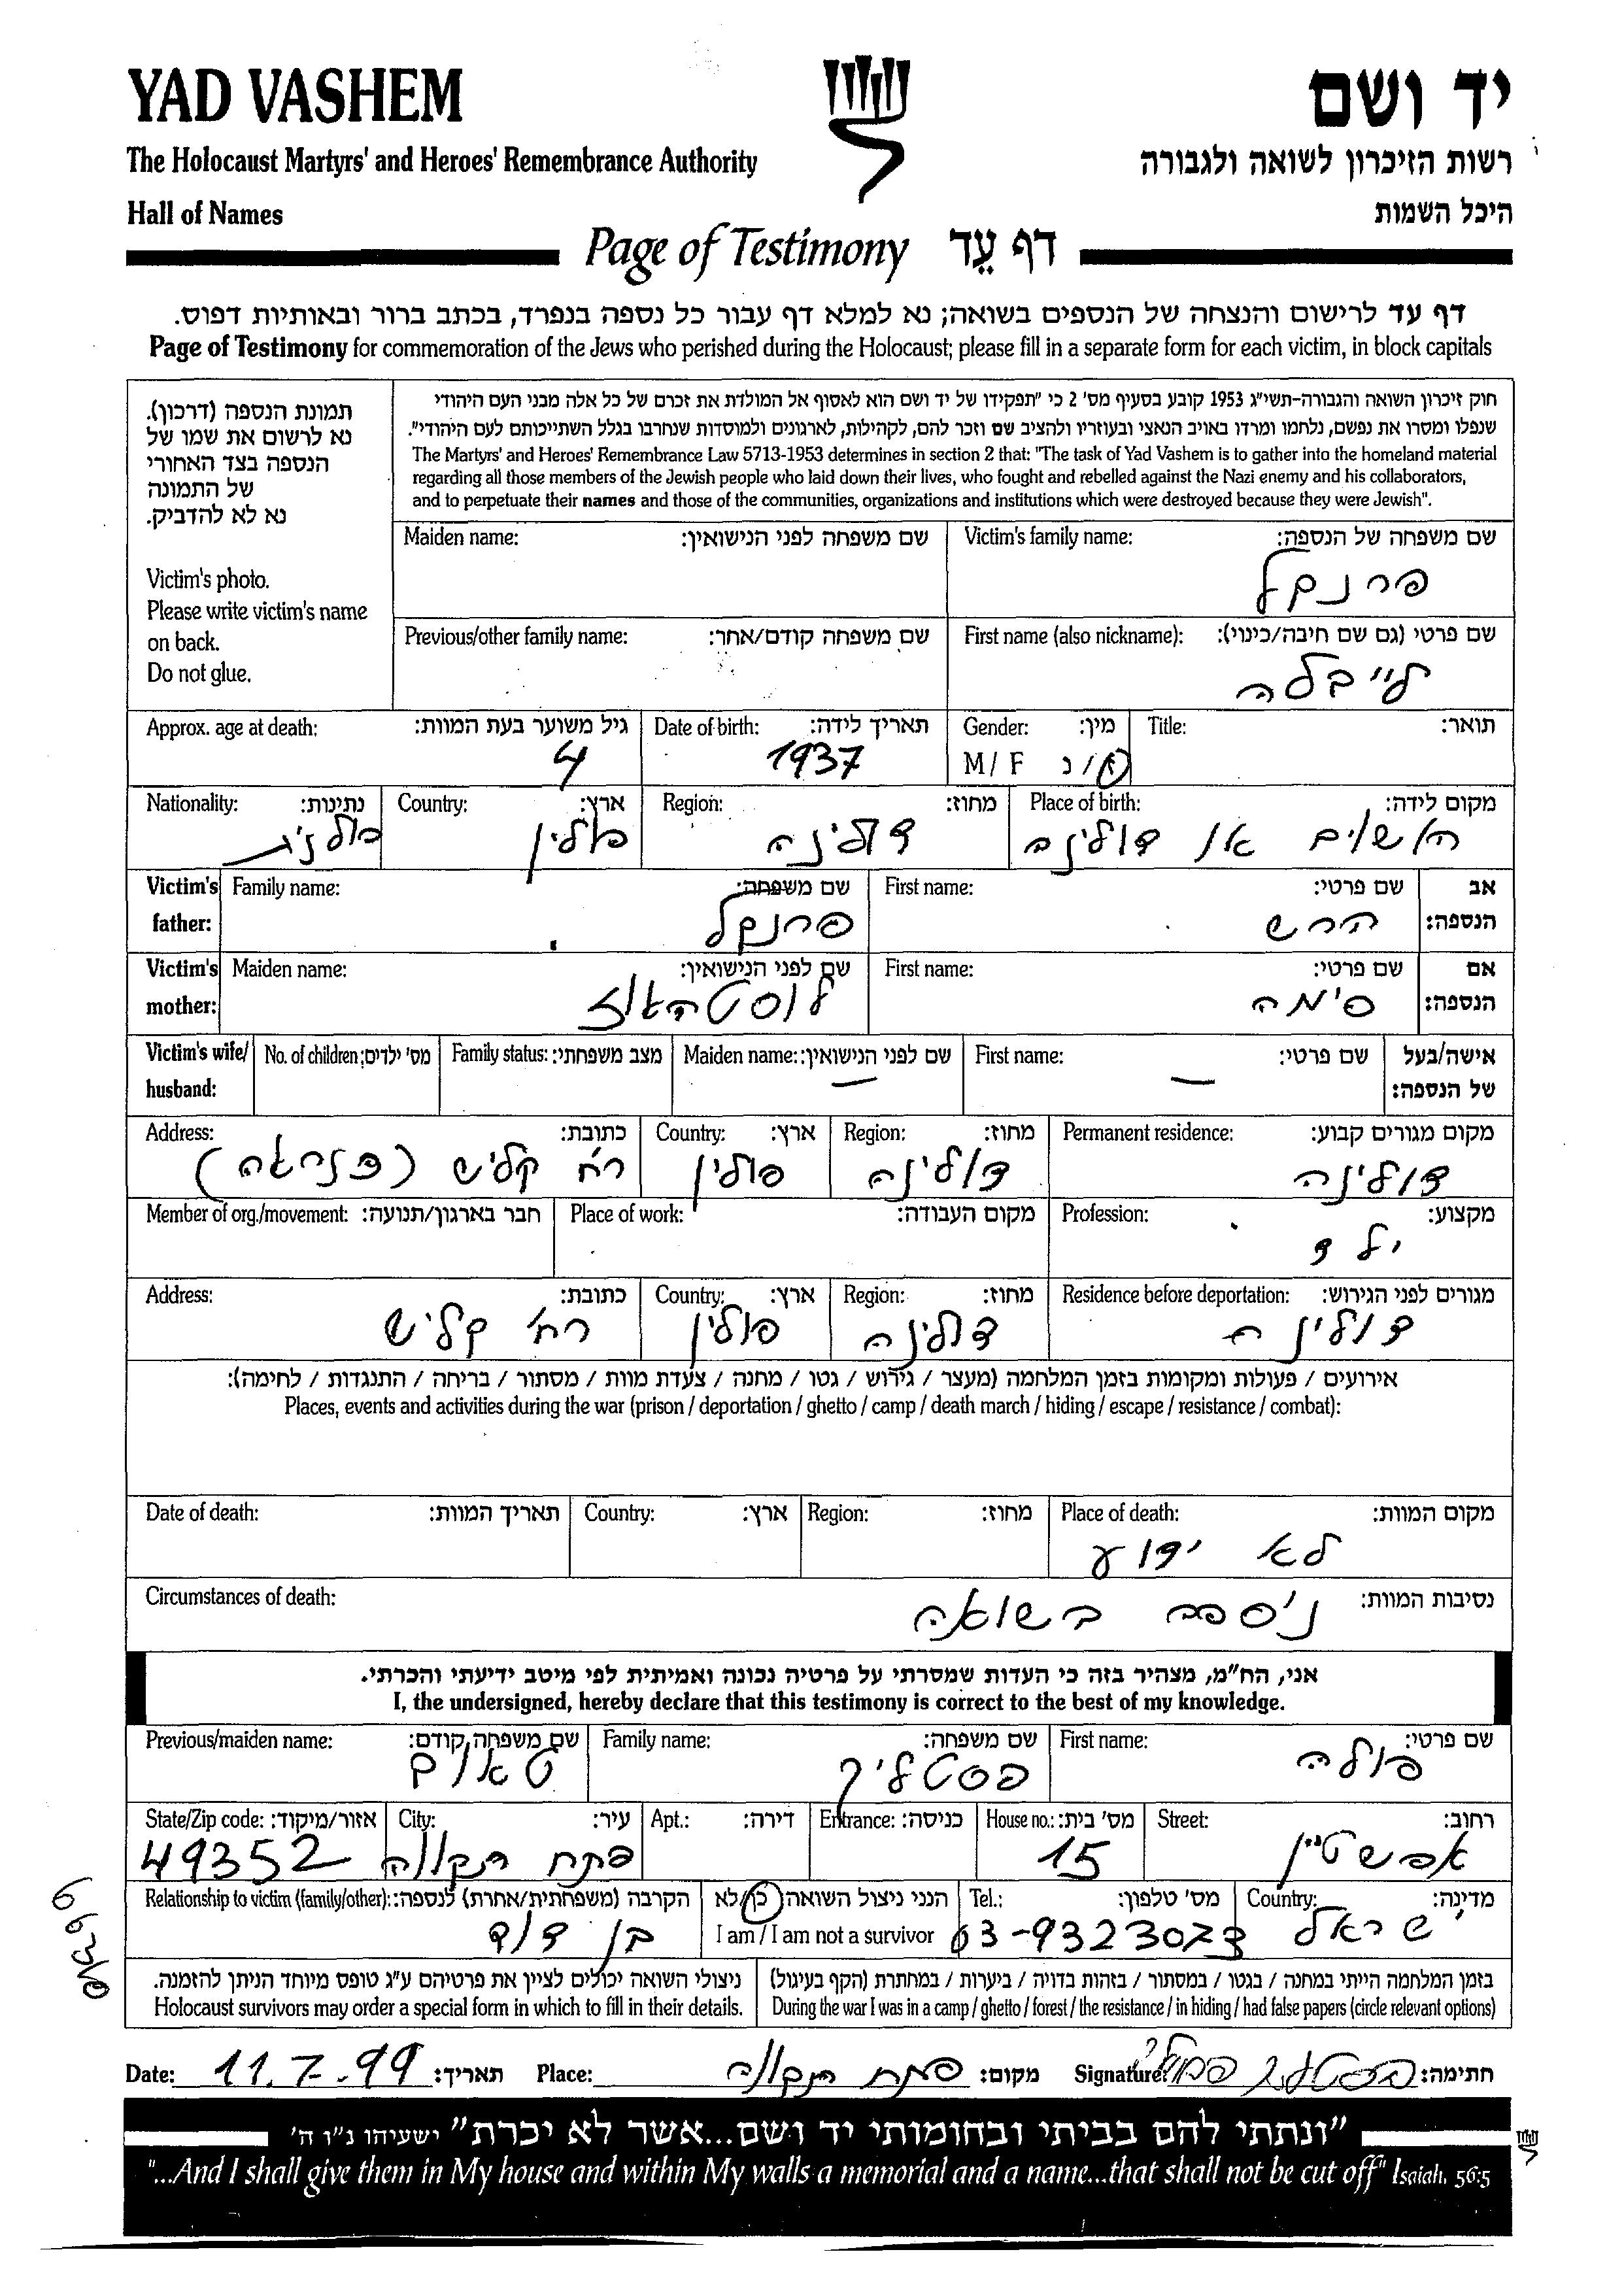 YAD VASHEM
יד ושם
The Holocaust Martyrs' and Heroes' Remembrance Authority
רשות הזיכרון לשואה ולגבורה
Hall of Names
היכל השמות
Page of Testimony דף עֵד
דף עד לרישום והנצחה של הנספים בשואה; נא למלא דף עבור כל נספה בנפרד, בכתב ברור ובאותיות דפוס.
Page of Testimony for commemoration of the Jews who perished during the Holocaust; please fill in a separate form for each victim, in block capitals
תמונת הנספה (דרכון).
נא לרשום את שמו של
הנספה בצד האחורי
של התמונה
נא לא להדביק.
Victim's photo.
Please write victim's name
on back.
Do not glue.
חוק זיכרון השואה והגבורה-תשי"ג 1953 קובע בסעיף מס' 2 כי "תפקידו של יד ושם הוא לאסוף אל המולדת את זכרם של כל אלה מבני העם היהודי
שנפלו ומסרו את נפשם, נלחמו ומרדו באויב הנאצי ובעוזריו ולהציב שם וזכר להם, לקהילות, לארגונים ולמוסדות שנחרבו בגלל השתייכותם לעם היהודי".
The Martyrs' and Heroes' Remembrance Law 5713-1953 determines in section 2 that: "The task of Yad Vashem is to gather into the homeland material
regarding all those members of the Jewish people who laid down their lives, who fought and rebelled against the Nazi enemy and his collaborators,
and to perpetuate their names and those of the communities, organizations and institutions which were destroyed because they were Jewish".
Victim's family name: שם משפחה של הנספה:
פרנקל
Maiden name: שם משפחה לפני הנישואין:
First name (also nickname): שם פרטי (גם שם חיבה/כינוי):
לייבלה
Previous/other family name: שם משפחה קודם/אחר:
Title: תואר:
Gender: מין:
M/ F ז/נ
Date of birth: תאריך לידה:
1937
Approx. age at death: גיל משוער בעת המוות:
4
Place of birth: מקום לידה:
או דולינה
Region: מחוז:
דולינה
Country: ארץ:
פולין
Nationality: נתינות:
Victim's father: אב הנספה:
First name: שם פרטי:
הרש
Family name: שם משפחה:
פרנקל
Victim's mother: אם הנספה:
First name: שם פרטי:
סימה
Maiden name: שם לפני הנישואין:
לוסטהאוז
Victim's wife/ husband: אישה/בעל של הנספה:
First name: שם פרטי:
—
Maiden name: שם לפני הנישואין:
—
Family status: מצב משפחתי:
No. of children: מס' ילדים:
Permanent residence: מקום מגורים קבוע:
דולינה
Region: מחוז:
דולינה
Country: ארץ:
פולין
Address: כתובת:
רח' קליש (כנראה)
Profession: מקצוע:
ילד
Place of work: מקום העבודה:
Member of org./movement: חבר בארגון/תנועה:
Residence before deportation: מגורים לפני הגירוש:
דולינה
Region: מחוז:
דולינה
Country: ארץ:
פולין
Address: כתובת:
רח' קליש
אירועים / פעולות ומקומות בזמן המלחמה (מעצר / גירוש / גטו / מחנה / צעדת מוות / מסתור / בריחה / התנגדות / לחימה):
Places, events and activities during the war (prison / deportation / ghetto / camp / death march / hiding / escape / resistance / combat):
Place of death: מקום המוות:
לא ידוע
Region: מחוז:
Country: ארץ:
Date of death: תאריך המוות:
Circumstances of death: נסיבות המוות:
ניספה בשואה
אני, הח"מ, מצהיר בזה כי העדות שמסרתי על פרטיה נכונה ואמיתית לפי מיטב ידיעתי והכרתי.
I, the undersigned, hereby declare that this testimony is correct to the best of my knowledge.
First name: שם פרטי:
פולה
Family name: שם משפחה:
פסטליך
Previous/maiden name: שם משפחה קודם:
טאום
Street: רחוב:
אפשטיין
House no.: מס' בית:
15
Entrance: כניסה:
Apt.: דירה:
City: עיר:
פתח תקווה
State/Zip code: אזור/מיקוד:
49352
Country: מדינה:
ישראל
Tel.: מס' טלפון:
03-9323023
הנני ניצול השואה: כן/לא
I am / I am not a survivor
Relationship to victim (family/other): הקרבה (משפחתית/אחרת) לנספה:
בן דוד
בזמן המלחמה הייתי במחנה / בגטו / במסתור / בזהות בדויה / ביערות / במחתרת (הקף בעיגול)
During the war I was in a camp / ghetto / forest / the resistance / in hiding / had false papers (circle relevant options)
ניצולי השואה יכולים לציין את פרטיהם ע"ג טופס מיוחד הניתן להזמנה.
Holocaust survivors may order a special form in which to fill in their details.
Date: 11.7.99 תאריך:
Place: פתח תקווה מקום:
Signature: חתימה:
"ונתתי להם בביתי ובחומותי יד ושם...אשר לא יכרת" ישעיהו נ"ו ה'
"...And I shall give them in My house and within My walls a memorial and a name...that shall not be cut off" Isaiah, 56:5